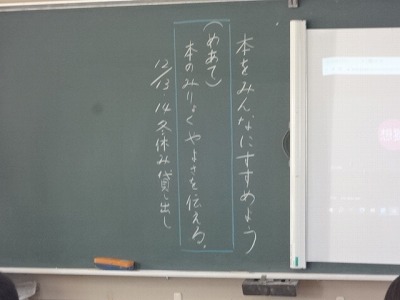 本をみんなにすすめよう
(めあて)
本のみりょくやよさを伝える。
12/13・14 冬休み貸し出し